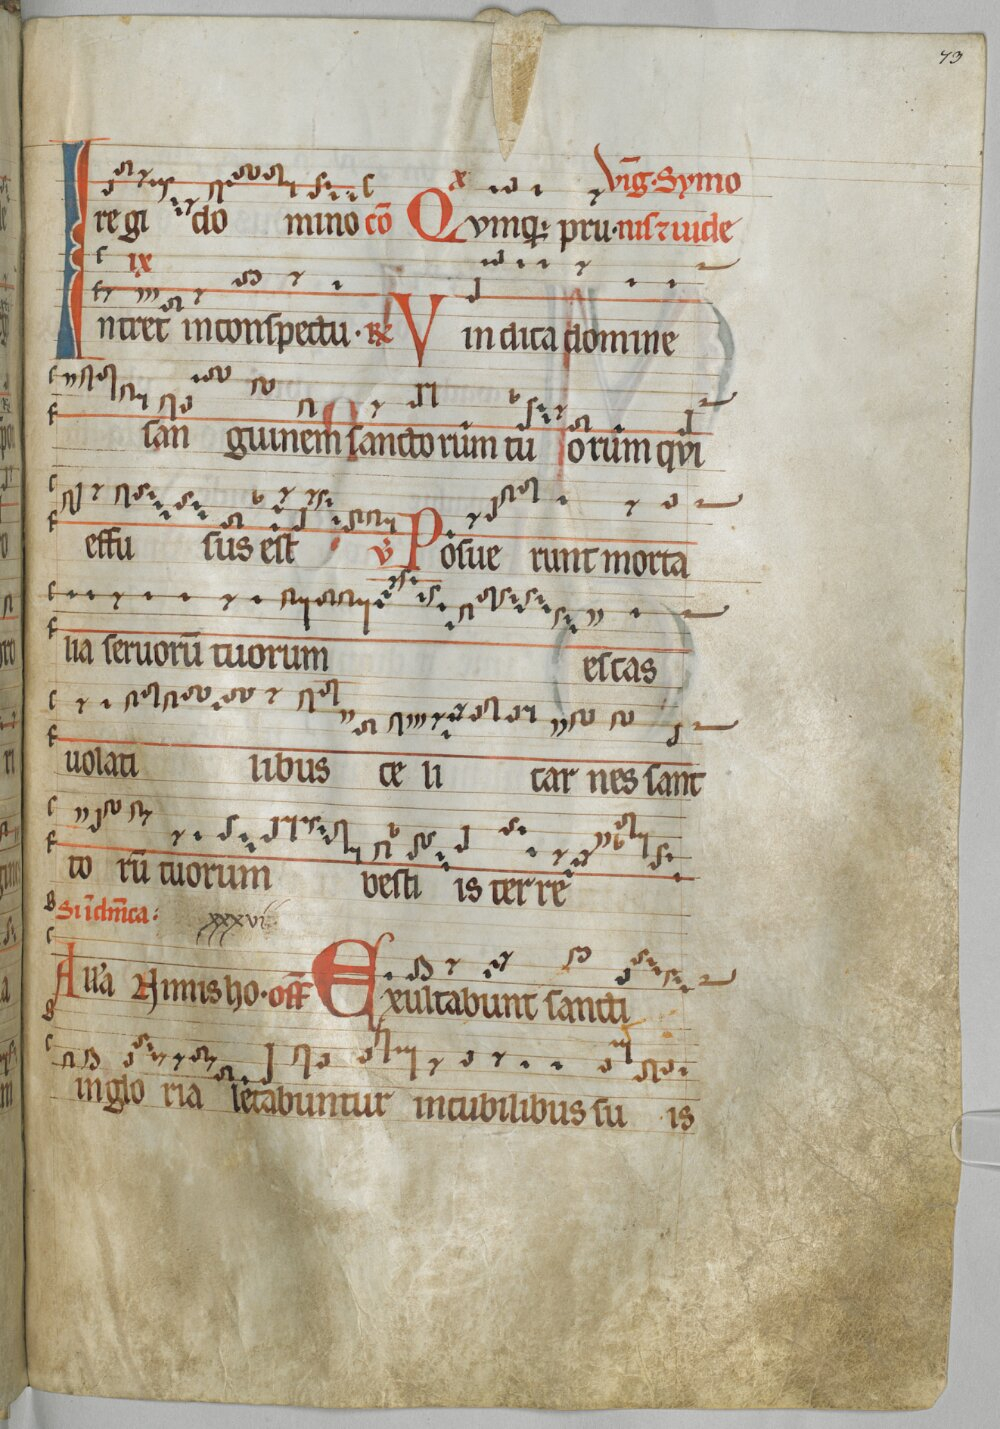 73
Vig̅·Symo
re gi do mino cō Qvinq; pru·niſ ⁊ uide
IX
Intret in conſpectu · ℟ Vindica domine
san guinem ſanctorum tu orum qvi
effu ſus eſt ℣ Poſue runt morta
lia ſeruoru̅ tuorum eſcas
uolati libus ce li car nes ſanc
to ru̅ tuorum beſti is ter re
Si i̅ dn̅ica: xxxvi
All'a Annis ho· off̅ Exultabunt ſancti
in glo ria letabuntur in cubilibus ſu is